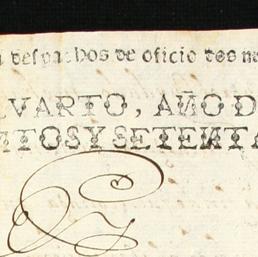 despachos de oficio dos m
VARTO, AÑO D
NTOS Y SETENTA